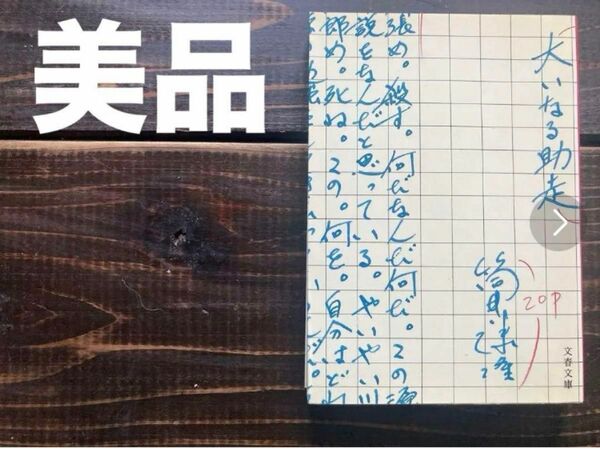 美品
大いなる助走
筒井康隆
20P
文春文庫
張め。殺す。何だなんだ何だ。この源
説をなんだと思っている。やいやい川
郎め。死ね。この。何を。自分はどれ